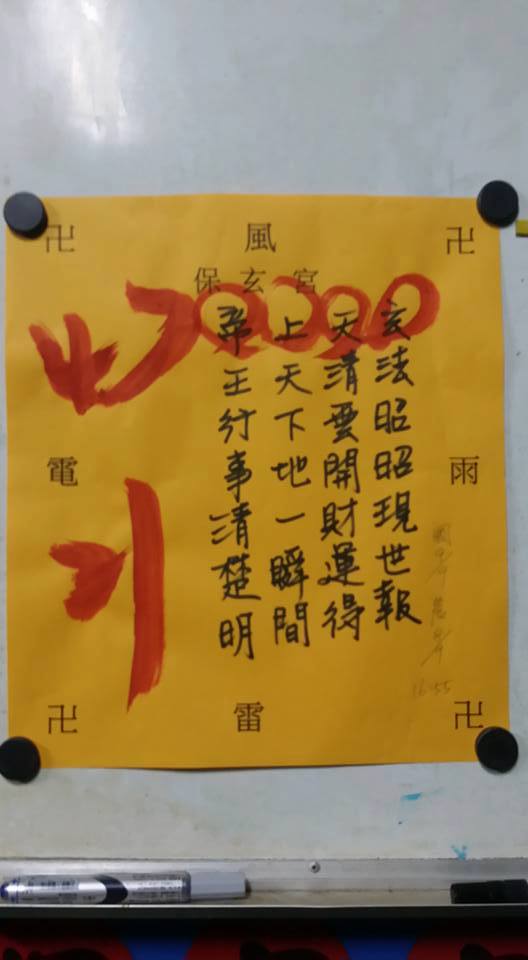 卍 風 卍
保玄宮
玄法昭昭現世報
天清雲開財運得
上天下地一瞬間
帝王行事清楚明
電 雨
16:55
卍 雷 卍